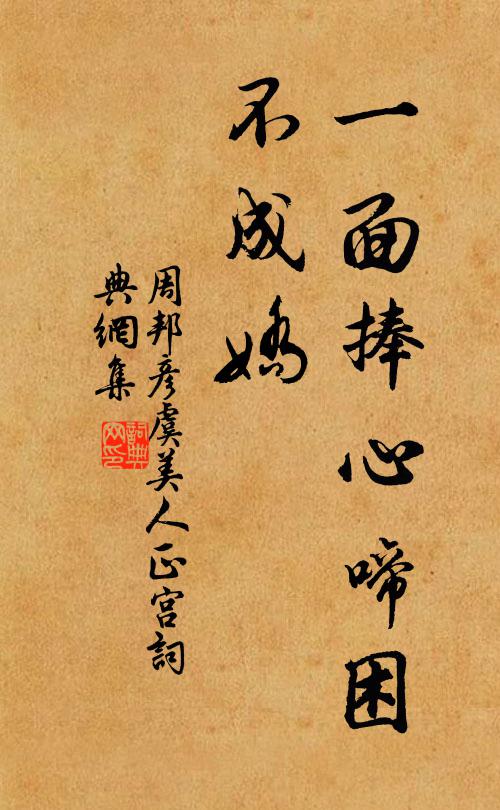 一面捧心啼困
不成嬌
周邦彥虞美人正宮詞
典網集
詞典
网印